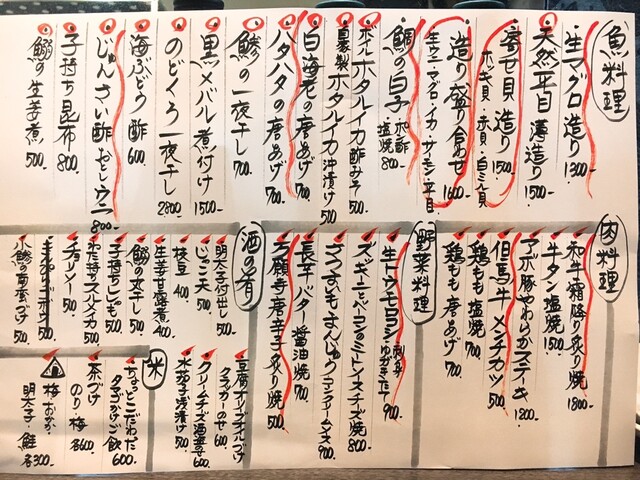 魚料理
生マグロ造り 1300-
天然平目 薄造り 1500
寄せ貝 造り 1500
ホッキ貝・赤貝・白ミル貝
造り盛り合わせ 1600
生ウニ・マグロ・イカ・サーモン・平目
鯛の白子 ポン酢 塩焼 800
ボイルホタルイカ酢みそ 500
自家製ホタルイカ沖漬け 500
白海老の唐あげ 700
ハタハタの唐あげ 700
鯵の一夜干し 700
黒メバル煮付け 1500-
のどくろ一夜干し 2800
海ぶどう酢 600
じゅんさい酢 おとしウニ 800-
子持ち昆布 800
鰯の生姜煮 500
肉料理
和牛霜降り炙り焼 1800-
牛タン塩焼 1500
アボ豚やわらかステーキ 1800
但馬牛メンチカツ 500
鶏もも 塩焼 700
鶏もも 唐あげ 700
野菜料理
生トウモロコシ 刺身・ゆがきたて 900
ズッキーニとベーコンのミートソースチーズ焼 800
長芋バター醤油焼 700
万願寺唐辛子炙り焼 500
酒の肴
明太子付出し 500
じゃこ天 500
枝豆 400
生姜甘露煮 400
鰯の丸干し 500
子持ちししゃも 500
わた持ちスルメイカ 500
チョリソー 500
小鯵の南蛮づけ 500
豆腐オリーブオイルづけ
クラッカーのせ 600
クリームチーズ酒盗のせ 600
水茄子浅漬け 500
米
ちょっとこだわった
タマゴかけご飯 600
茶づけ
のり・梅 各600
梅・おかか・
明太子・鮭 各300